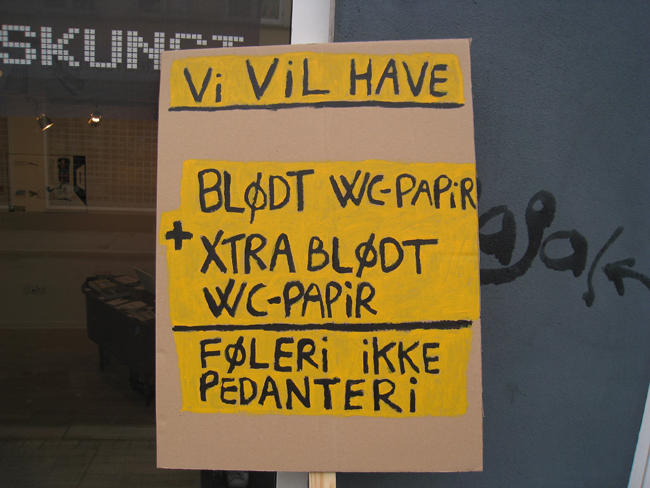 SKUNST
Vi ViL HAVE
BLØDT WC-PAPiR
+ XTRA BLØDT
WC-PAPiR
FØLERi iKKE
PEDANTERi